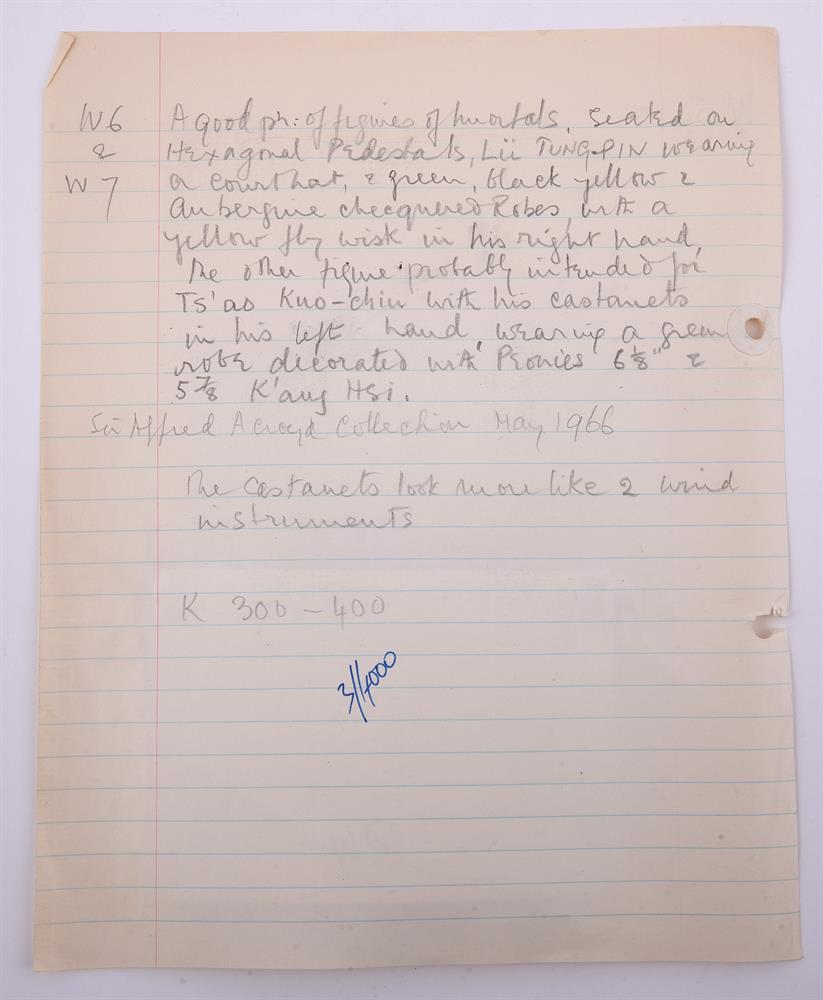 W6 A good pr: of figures of Imortals, seated on
& Hexagonal Pedestals, Lü TUNG-PIN wearing
W7 a court hat, & green, black yellow &
Aubergine checquered Robes, with a
yellow fly wisk in his right hand,
The other figure probably intended for
Ts'ao Kuo-chiu with his castanets
in his left hand, wearing a green
robe decorated with Peonies 6 1/8" &
5 7/8 K'ang Hsi.
Sir Alfred Acroyd Collection May 1966
The castanets look more like 2 wind
instruments
K 300 - 400
3/4000